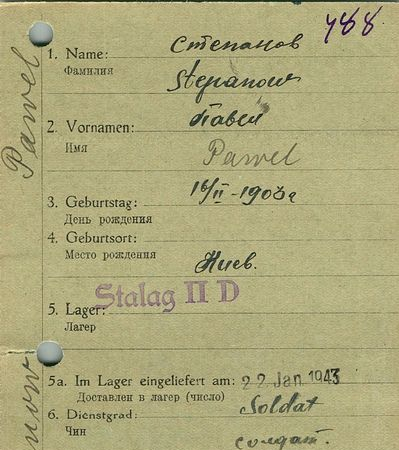 788
1. Name: Степанов
Фамилия
Stepanow
2. Vornamen: Павел
Имя
Pawel
3. Geburtstag: 16/II-1903г
День рождения
4. Geburtsort:
Место рождения
Киев.
Stalag II D
5. Lager:
Лагер
5a. Im Lager eingeliefert am: 22 Jan. 1943
Доставлен в лагер (число)
6. Dienstgrad: Soldat
Чин
солдат.
Pawel